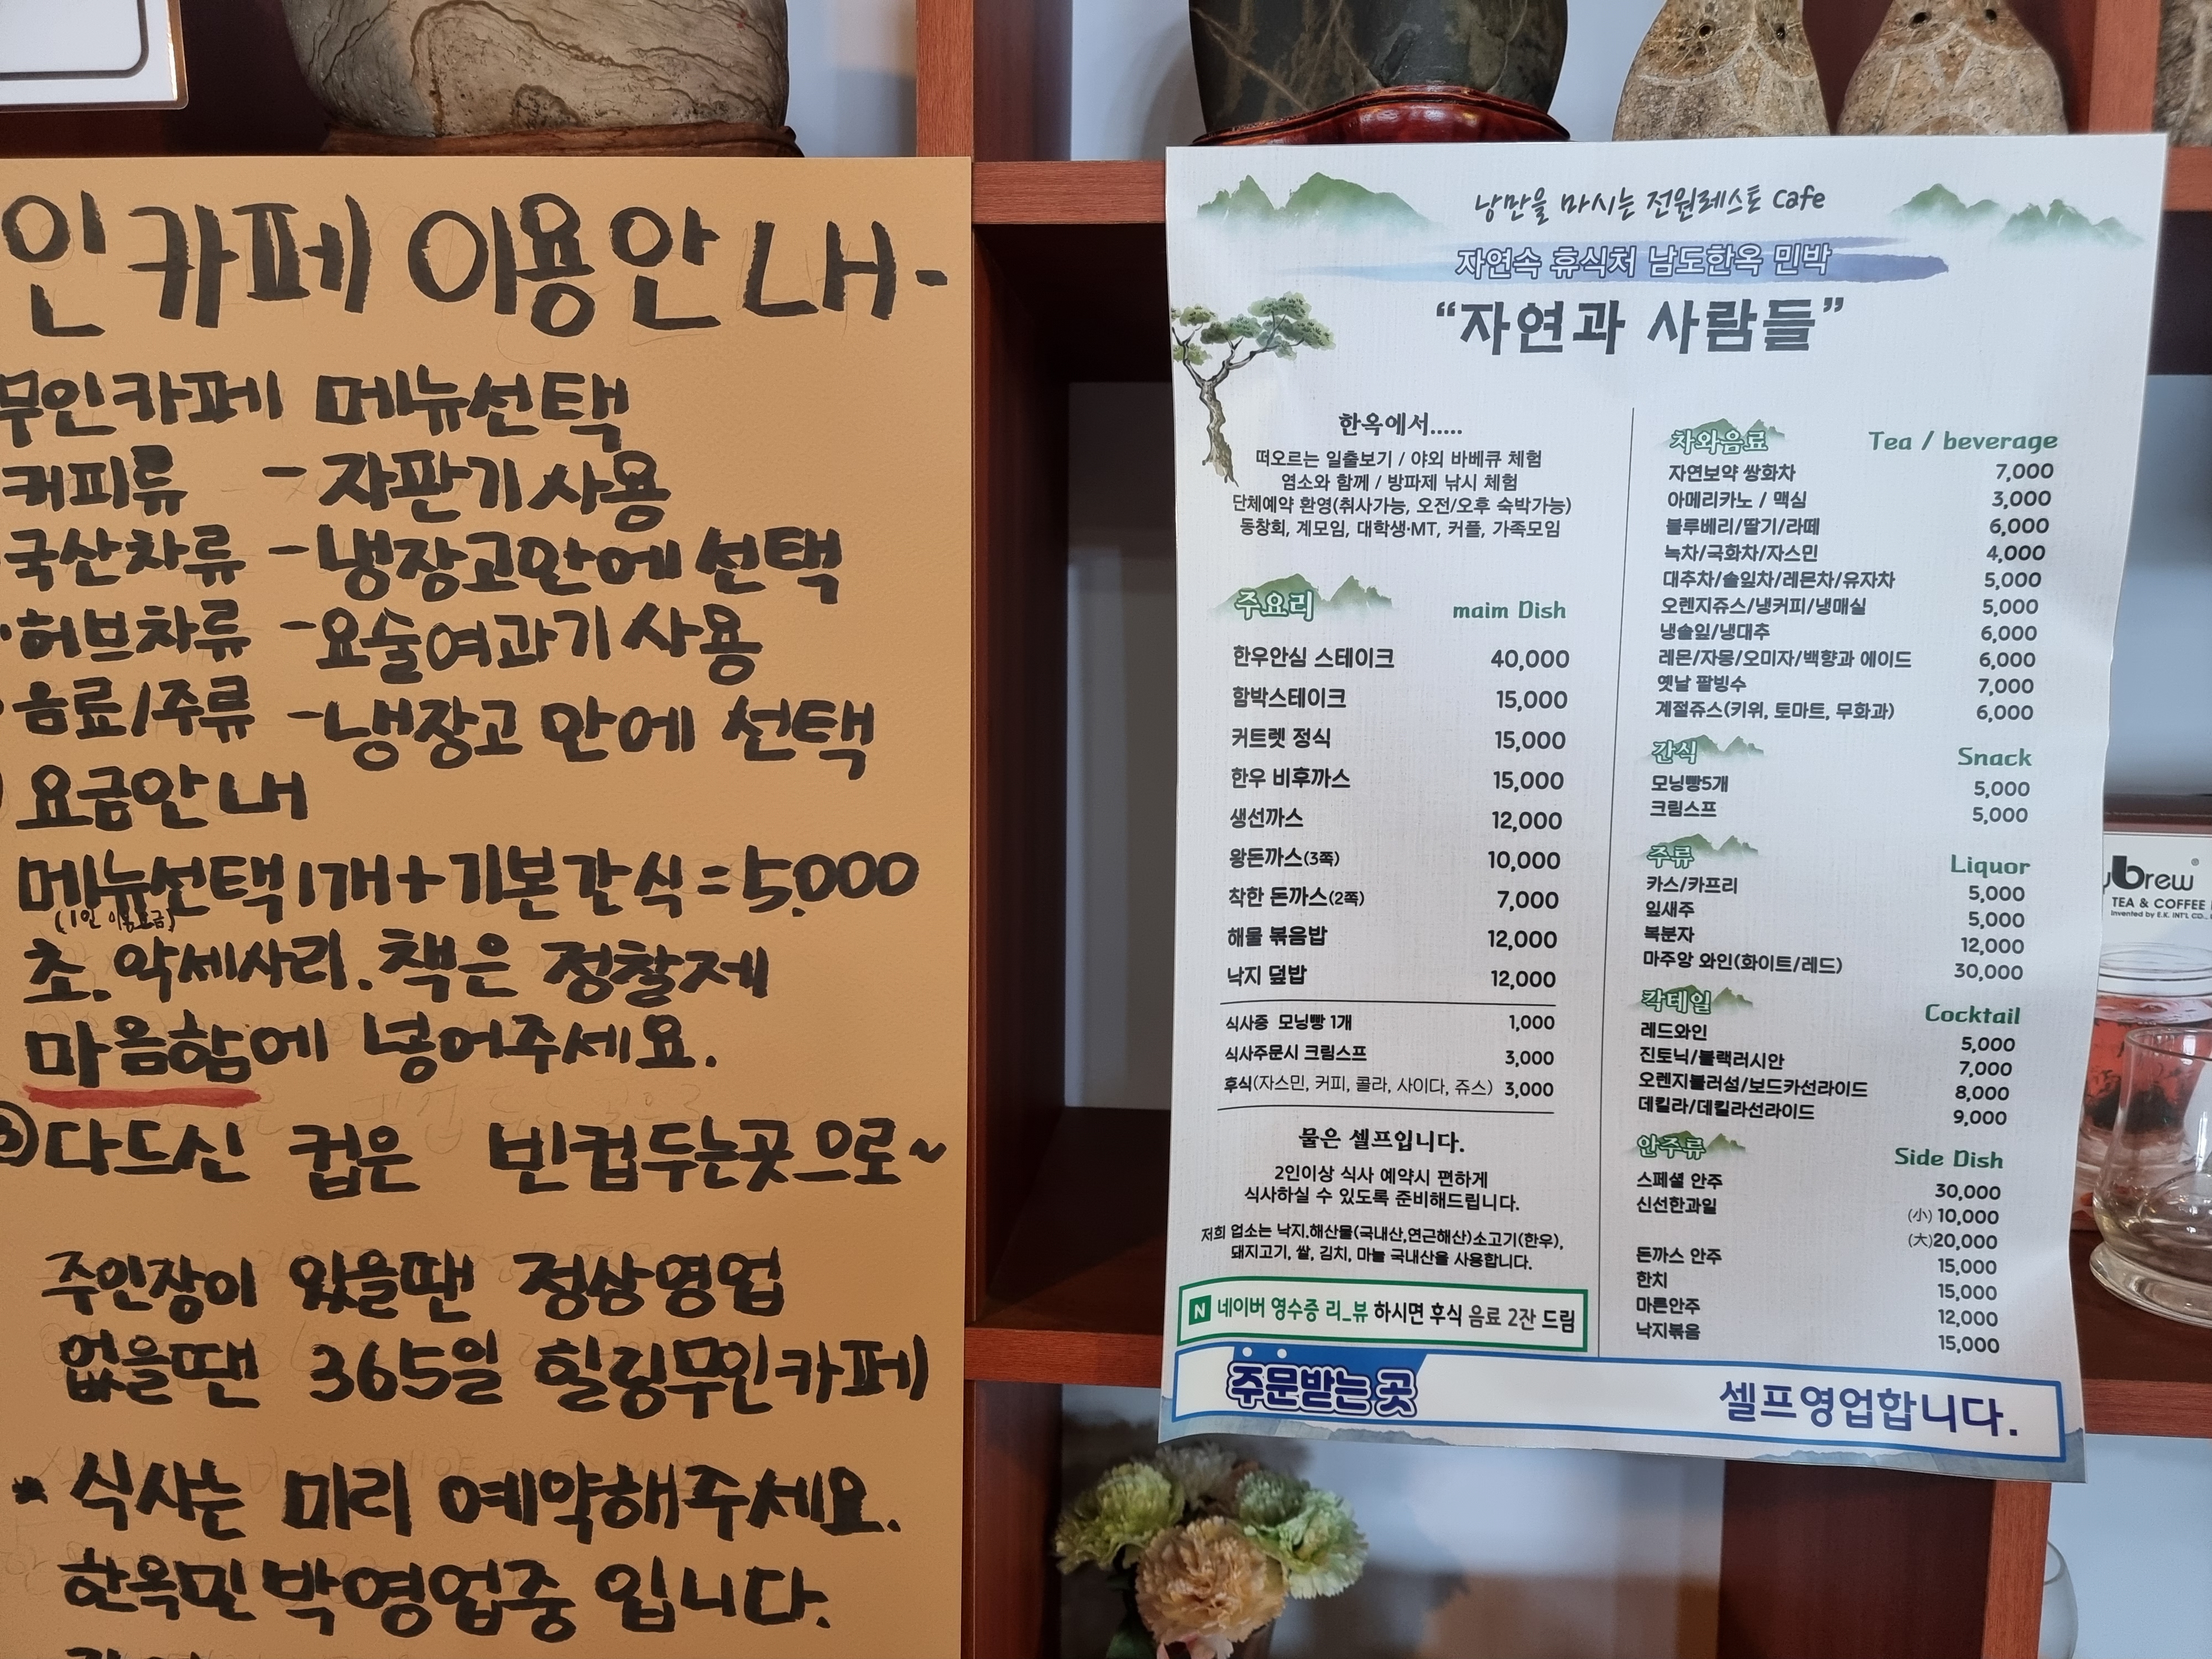 인카페 이용안내-
무인카페 메뉴선택
커피류 - 자판기사용
국산차류 - 냉장고안에 선택
·허브차류 - 요술여과기사용
·음료/주류 - 냉장고 안에 선택
요금안내
메뉴선택1개+기본간식=5,000
(1인 이용요금)
초.악세사리.책은 정찰제
마음함에 넣어주세요.
③다드신 컵은 빈컵두는곳으로~
주인장이 있을땐 정상영업
없을땐 365일 힐링무인카페
* 식사는 미리 예약해주세요.
한옥민박영업중 입니다.
낭만을 마시는 전원레스토 cafe
자연속 휴식처 남도한옥 민박
“자연과 사람들”
한옥에서.....
떠오르는 일출보기 / 야외 바베큐 체험
염소와 함께 / 방파제 낚시 체험
단체예약 환영(취사가능, 오전/오후 숙박가능)
동창회, 계모임, 대학생·MT, 커플, 가족모임
주요리 maim Dish
한우안심 스테이크 40,000
함박스테이크 15,000
커트렛 정식 15,000
한우 비후까스 15,000
생선까스 12,000
왕돈까스(3쪽) 10,000
착한 돈까스(2쪽) 7,000
해물 볶음밥 12,000
낙지 덮밥 12,000
식사중 모닝빵 1개 1,000
식사주문시 크림스프 3,000
후식(자스민, 커피, 콜라, 사이다, 쥬스) 3,000
물은 셀프입니다.
2인이상 식사 예약시 편하게
식사하실 수 있도록 준비해드립니다.
저희 업소는 낙지.해산물(국내산,연근해산)소고기(한우),
돼지고기, 쌀, 김치, 마늘 국내산을 사용합니다.
N 네이버 영수증 리_뷰 하시면 후식 음료 2잔 드림
차와음료 Tea / beverage
자연보약 쌍화차 7,000
아메리카노 / 맥심 3,000
블루베리/딸기/라떼 6,000
녹차/국화차/자스민 4,000
대추차/솔잎차/레몬차/유자차 5,000
오렌지쥬스/냉커피/냉매실 5,000
냉솔잎/냉대추 6,000
레몬/자몽/오미자/백향과 에이드 6,000
옛날 팥빙수 7,000
계절쥬스(키위, 토마트, 무화과) 6,000
간식 Snack
모닝빵5개 5,000
크림스프 5,000
주류 Liquor
카스/카프리 5,000
잎새주 5,000
복분자 12,000
마주앙 와인(화이트/레드) 30,000
칵테일 Cocktail
레드와인 5,000
진토닉/블랙러시안 7,000
오렌지블러섬/보드카선라이드 8,000
데킬라/데킬라선라이드 9,000
안주류 Side Dish
스페셜 안주 30,000
신선한과일 (小) 10,000
(大)20,000
돈까스 안주 15,000
한치 15,000
마른안주 12,000
낙지볶음 15,000
주문받는 곳 셀프영업합니다.
brew
TEA & COFFEE
Invented by E.K. INT'L CO.,